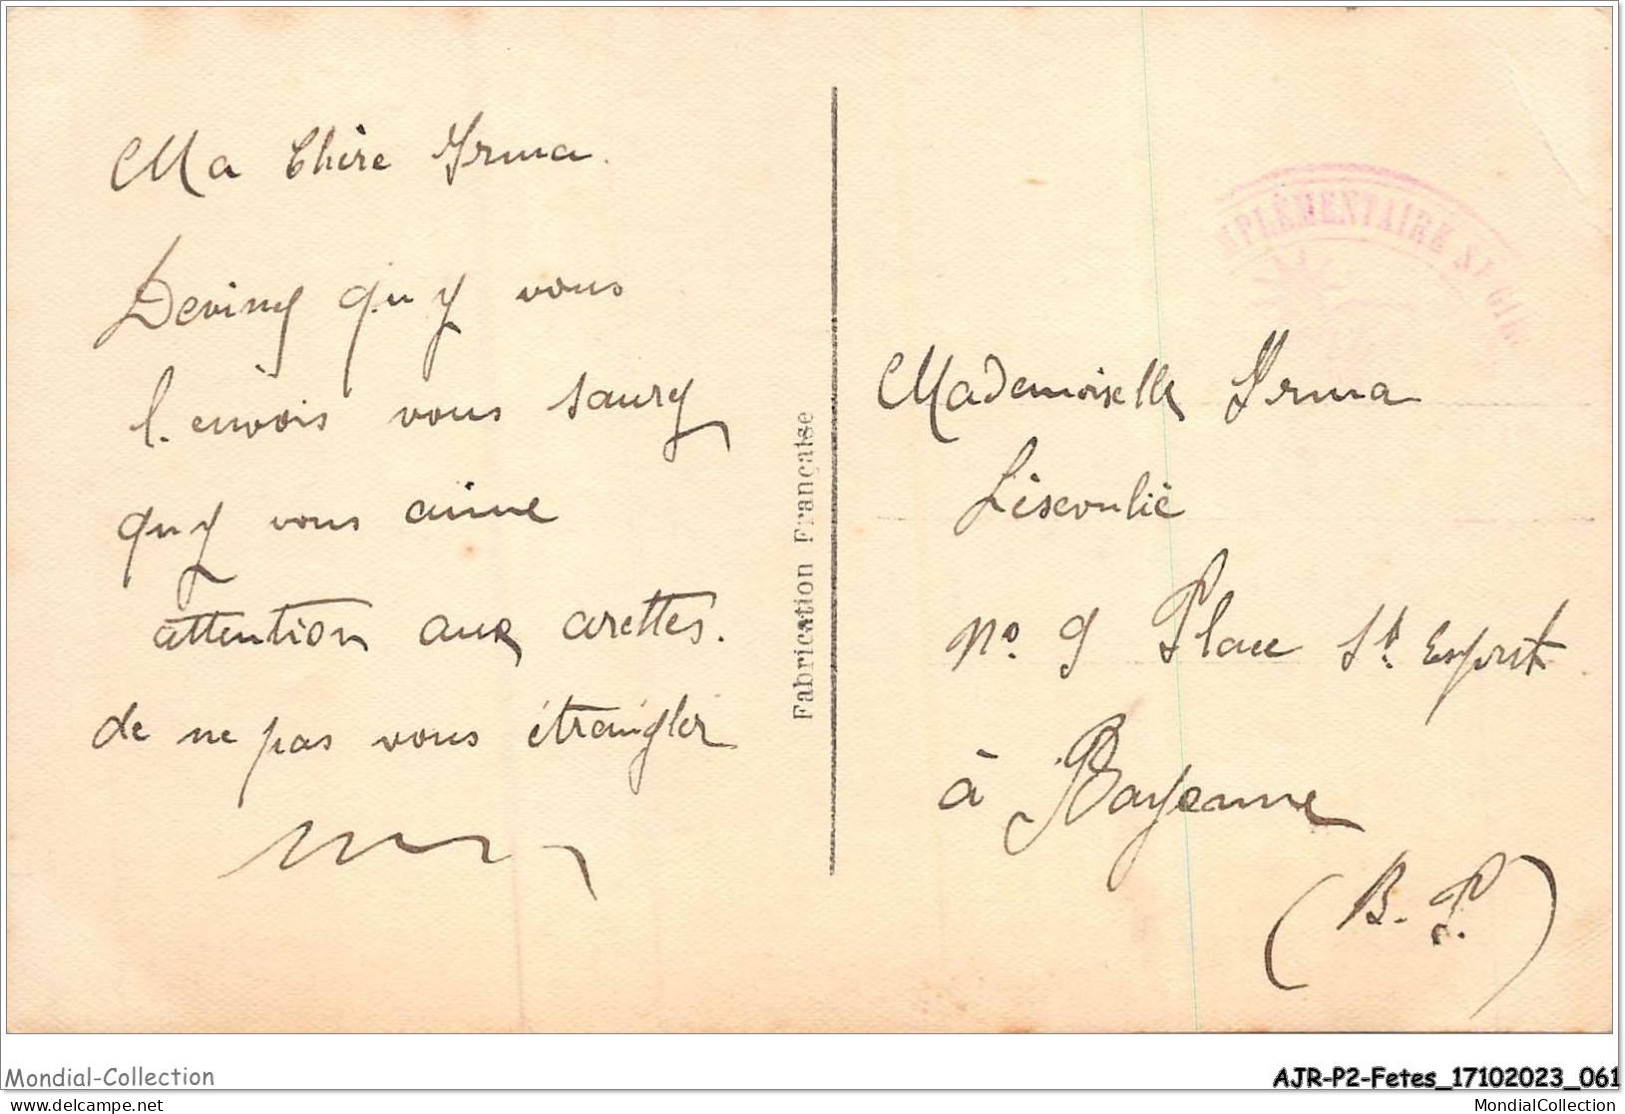 Ma Chère Irma.
Deviney qu'y vous
l. envois vous saurey
quy vous aime
attention aux arettes.
de ne pas vous étrangler
Fabrication Française
MPLÉMENTAIRE
Mademoiselle Irma
Léscoulié
No. 9 Place St. Esprit
à Bayonne
(B. P.)
Mondial-Collection
AJR-P2-Fetes_17102023_061
delcampe.net
MondialCollection